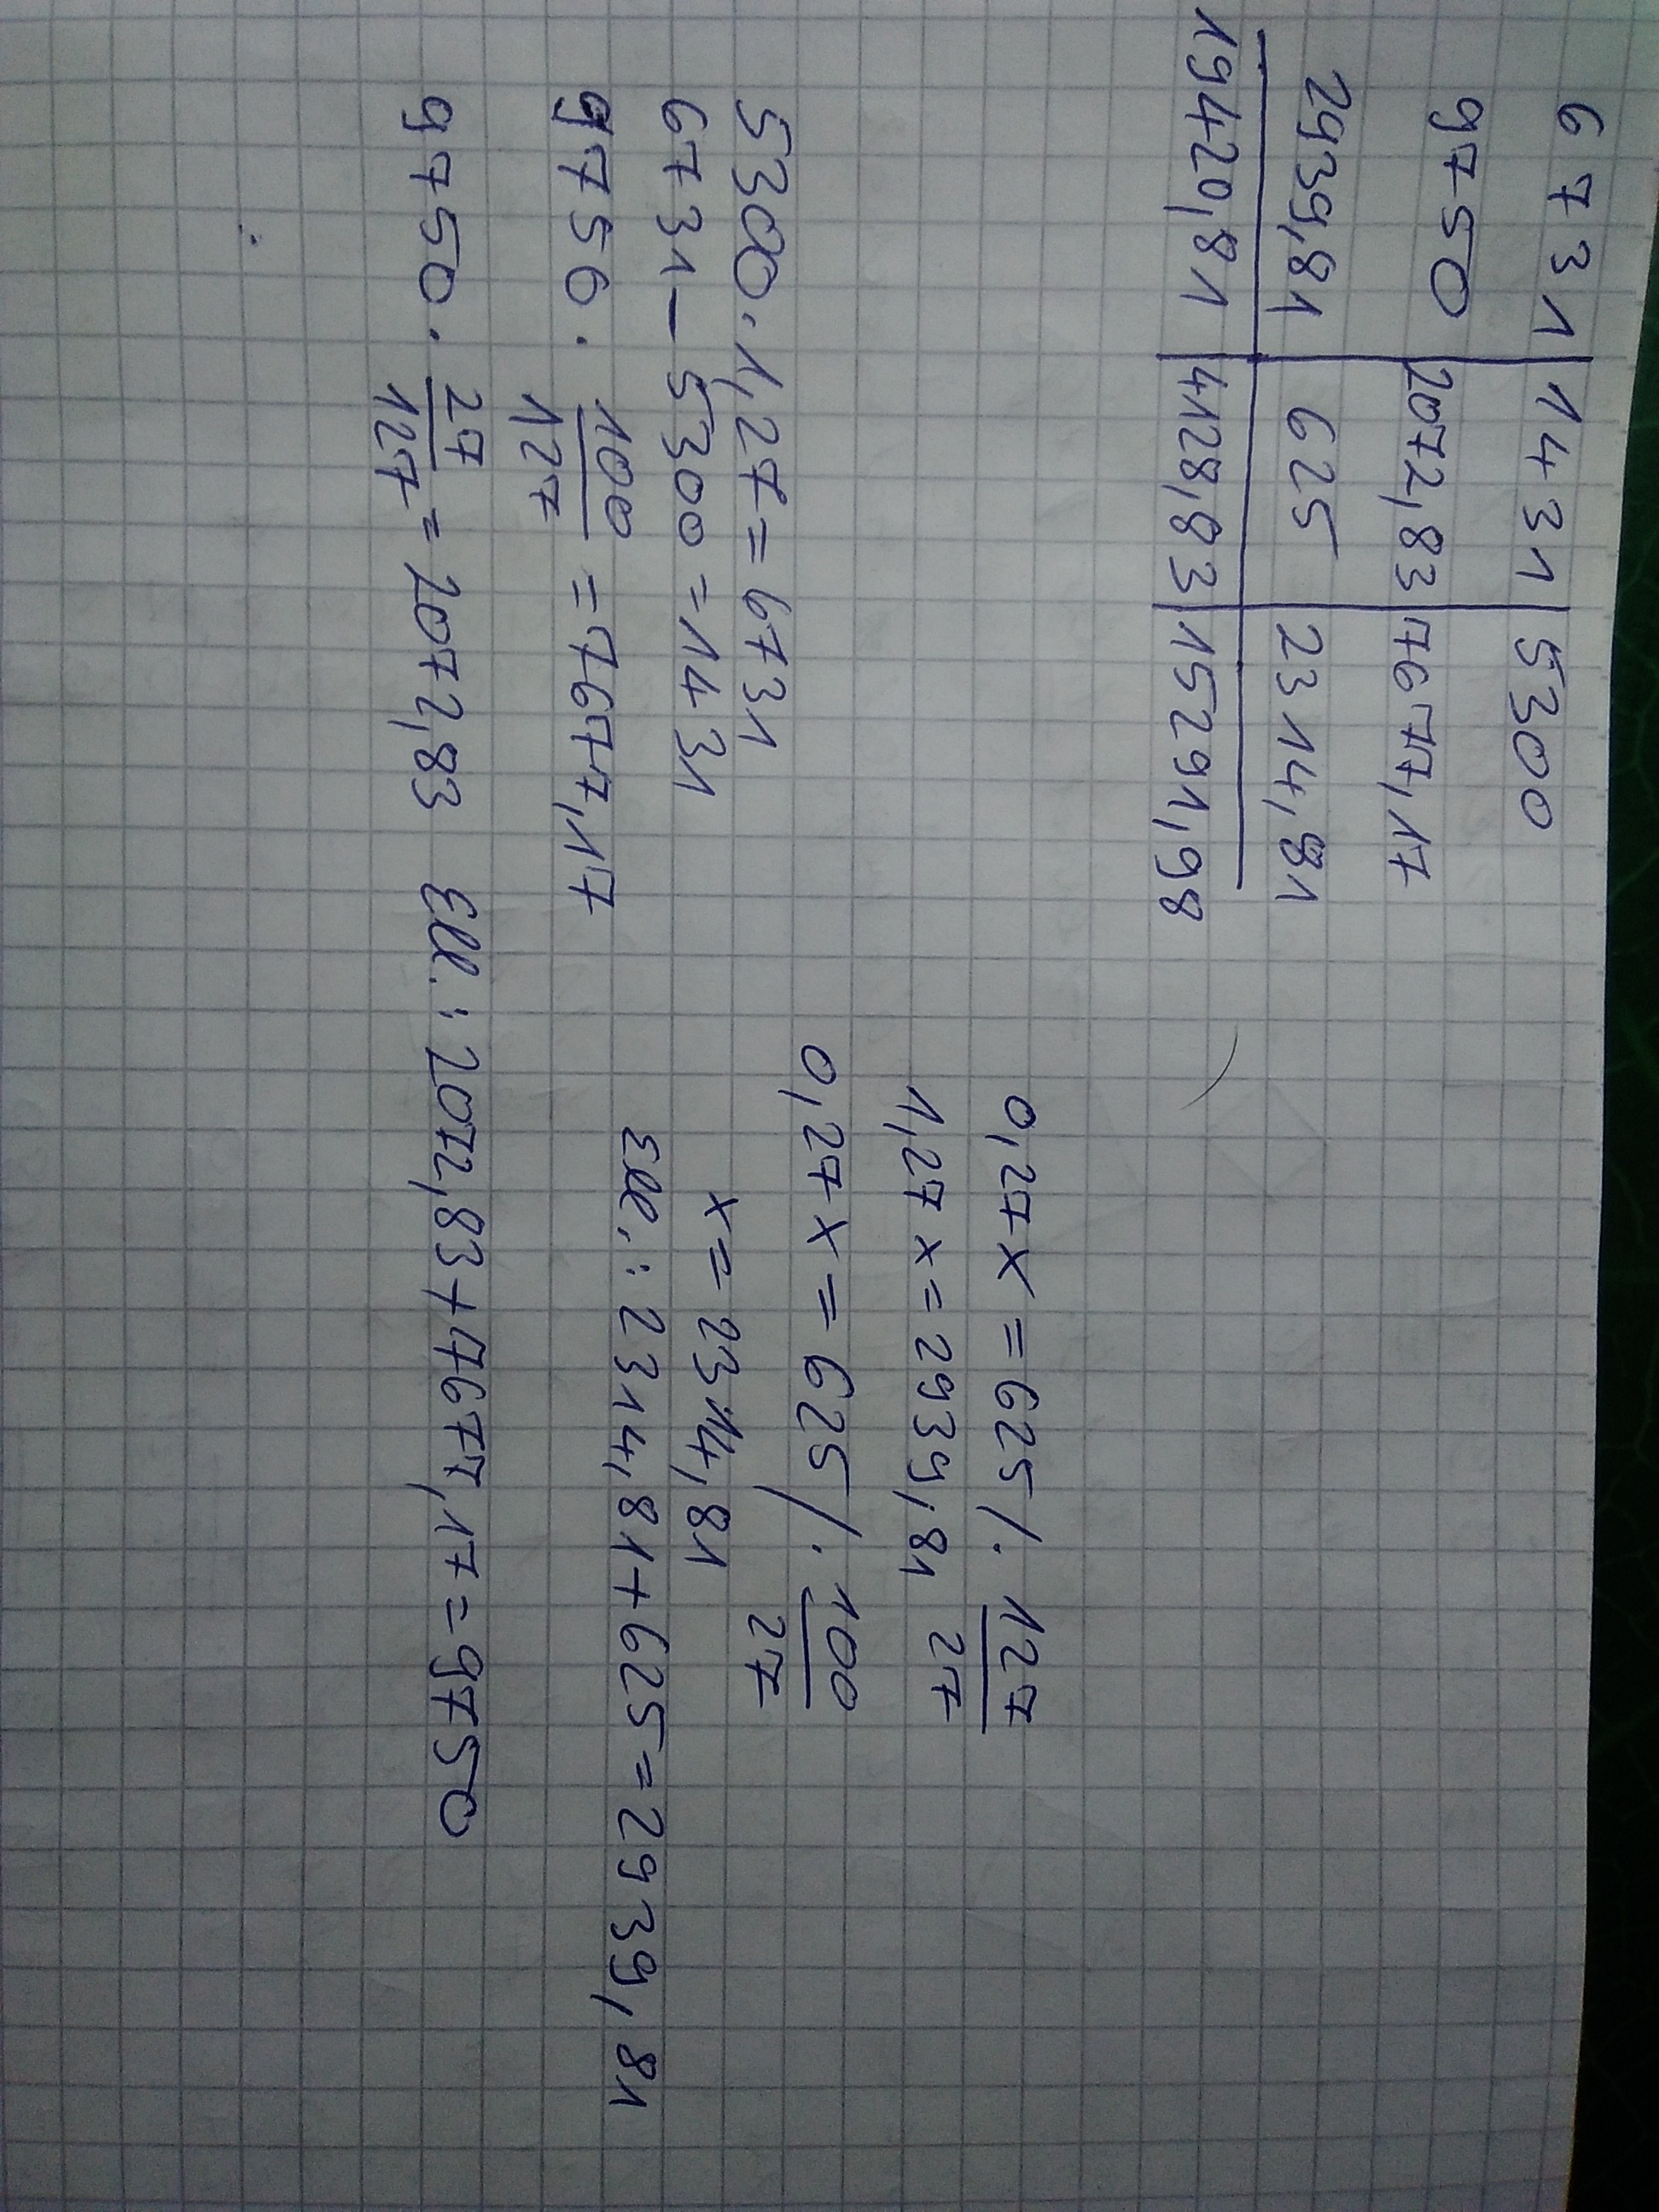 6731 | 1431 | 5300
9750 | 2072,83 | 7677,17
2939,81 | 625 | 2314,81
19420,81 | 4128,83 | 15291,98
0,27x = 625 /· 127/27
1,27x = 2939,81
0,27x = 625 /· 100/27
x = 2314,81
Ell.: 2314,81+625=2939,81
5300·1,27=6731
6731-5300=1431
9750·100/127=7677,17
9750·27/127=2072,83 Ell.: 2072,83+7677,17=9750